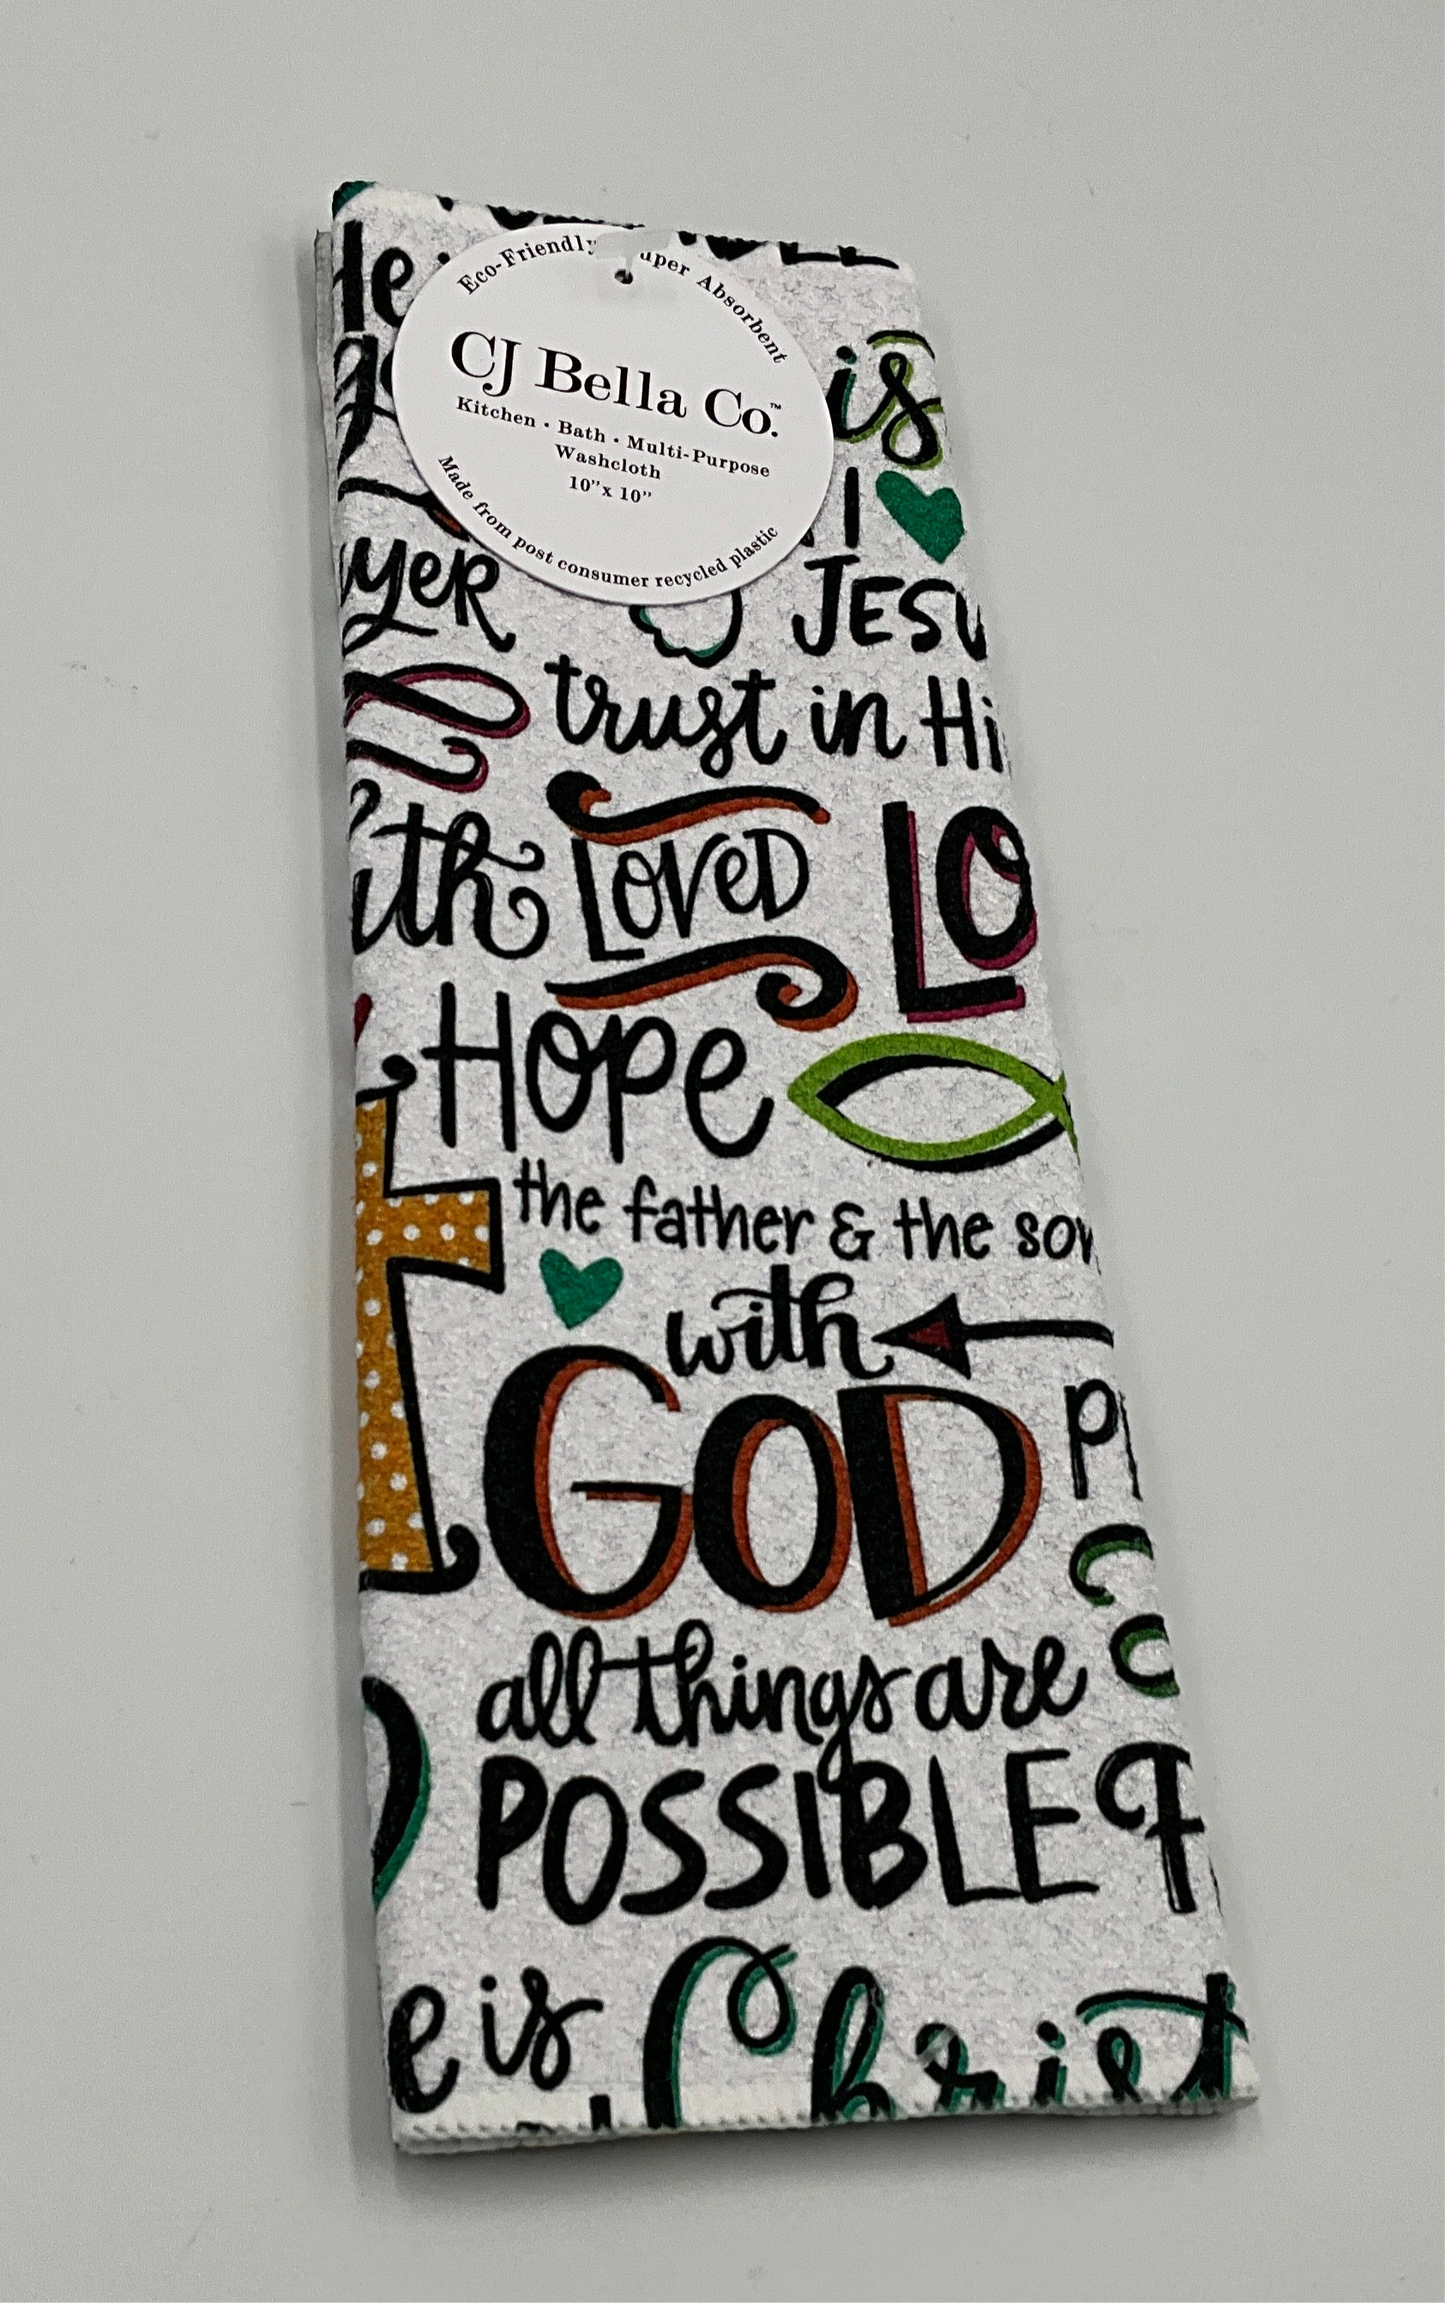 Eco-Friendly
Absorbent
CJ Bella Co.™
Kitchen • Bath • Multi-Purpose
Washcloth
10"x 10"
Made from post consumer recycled plastic
is
I
JESU
trust in Hi
LOVED
LO
HOPE
the father & the son
with
GOD
all things are
POSSIBLE
is
Christ